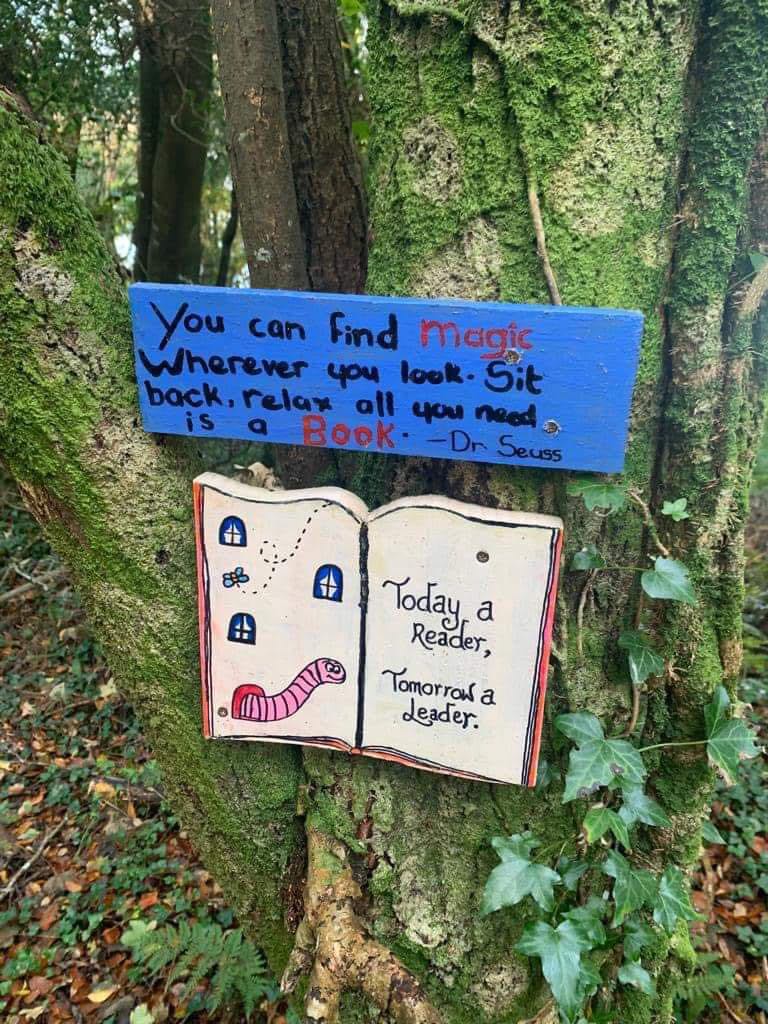 You can find magic
Wherever you look. Sit
back, relax all you need
is a Book. -Dr Seuss
Today a
Reader,
Tomorrow a
Leader.